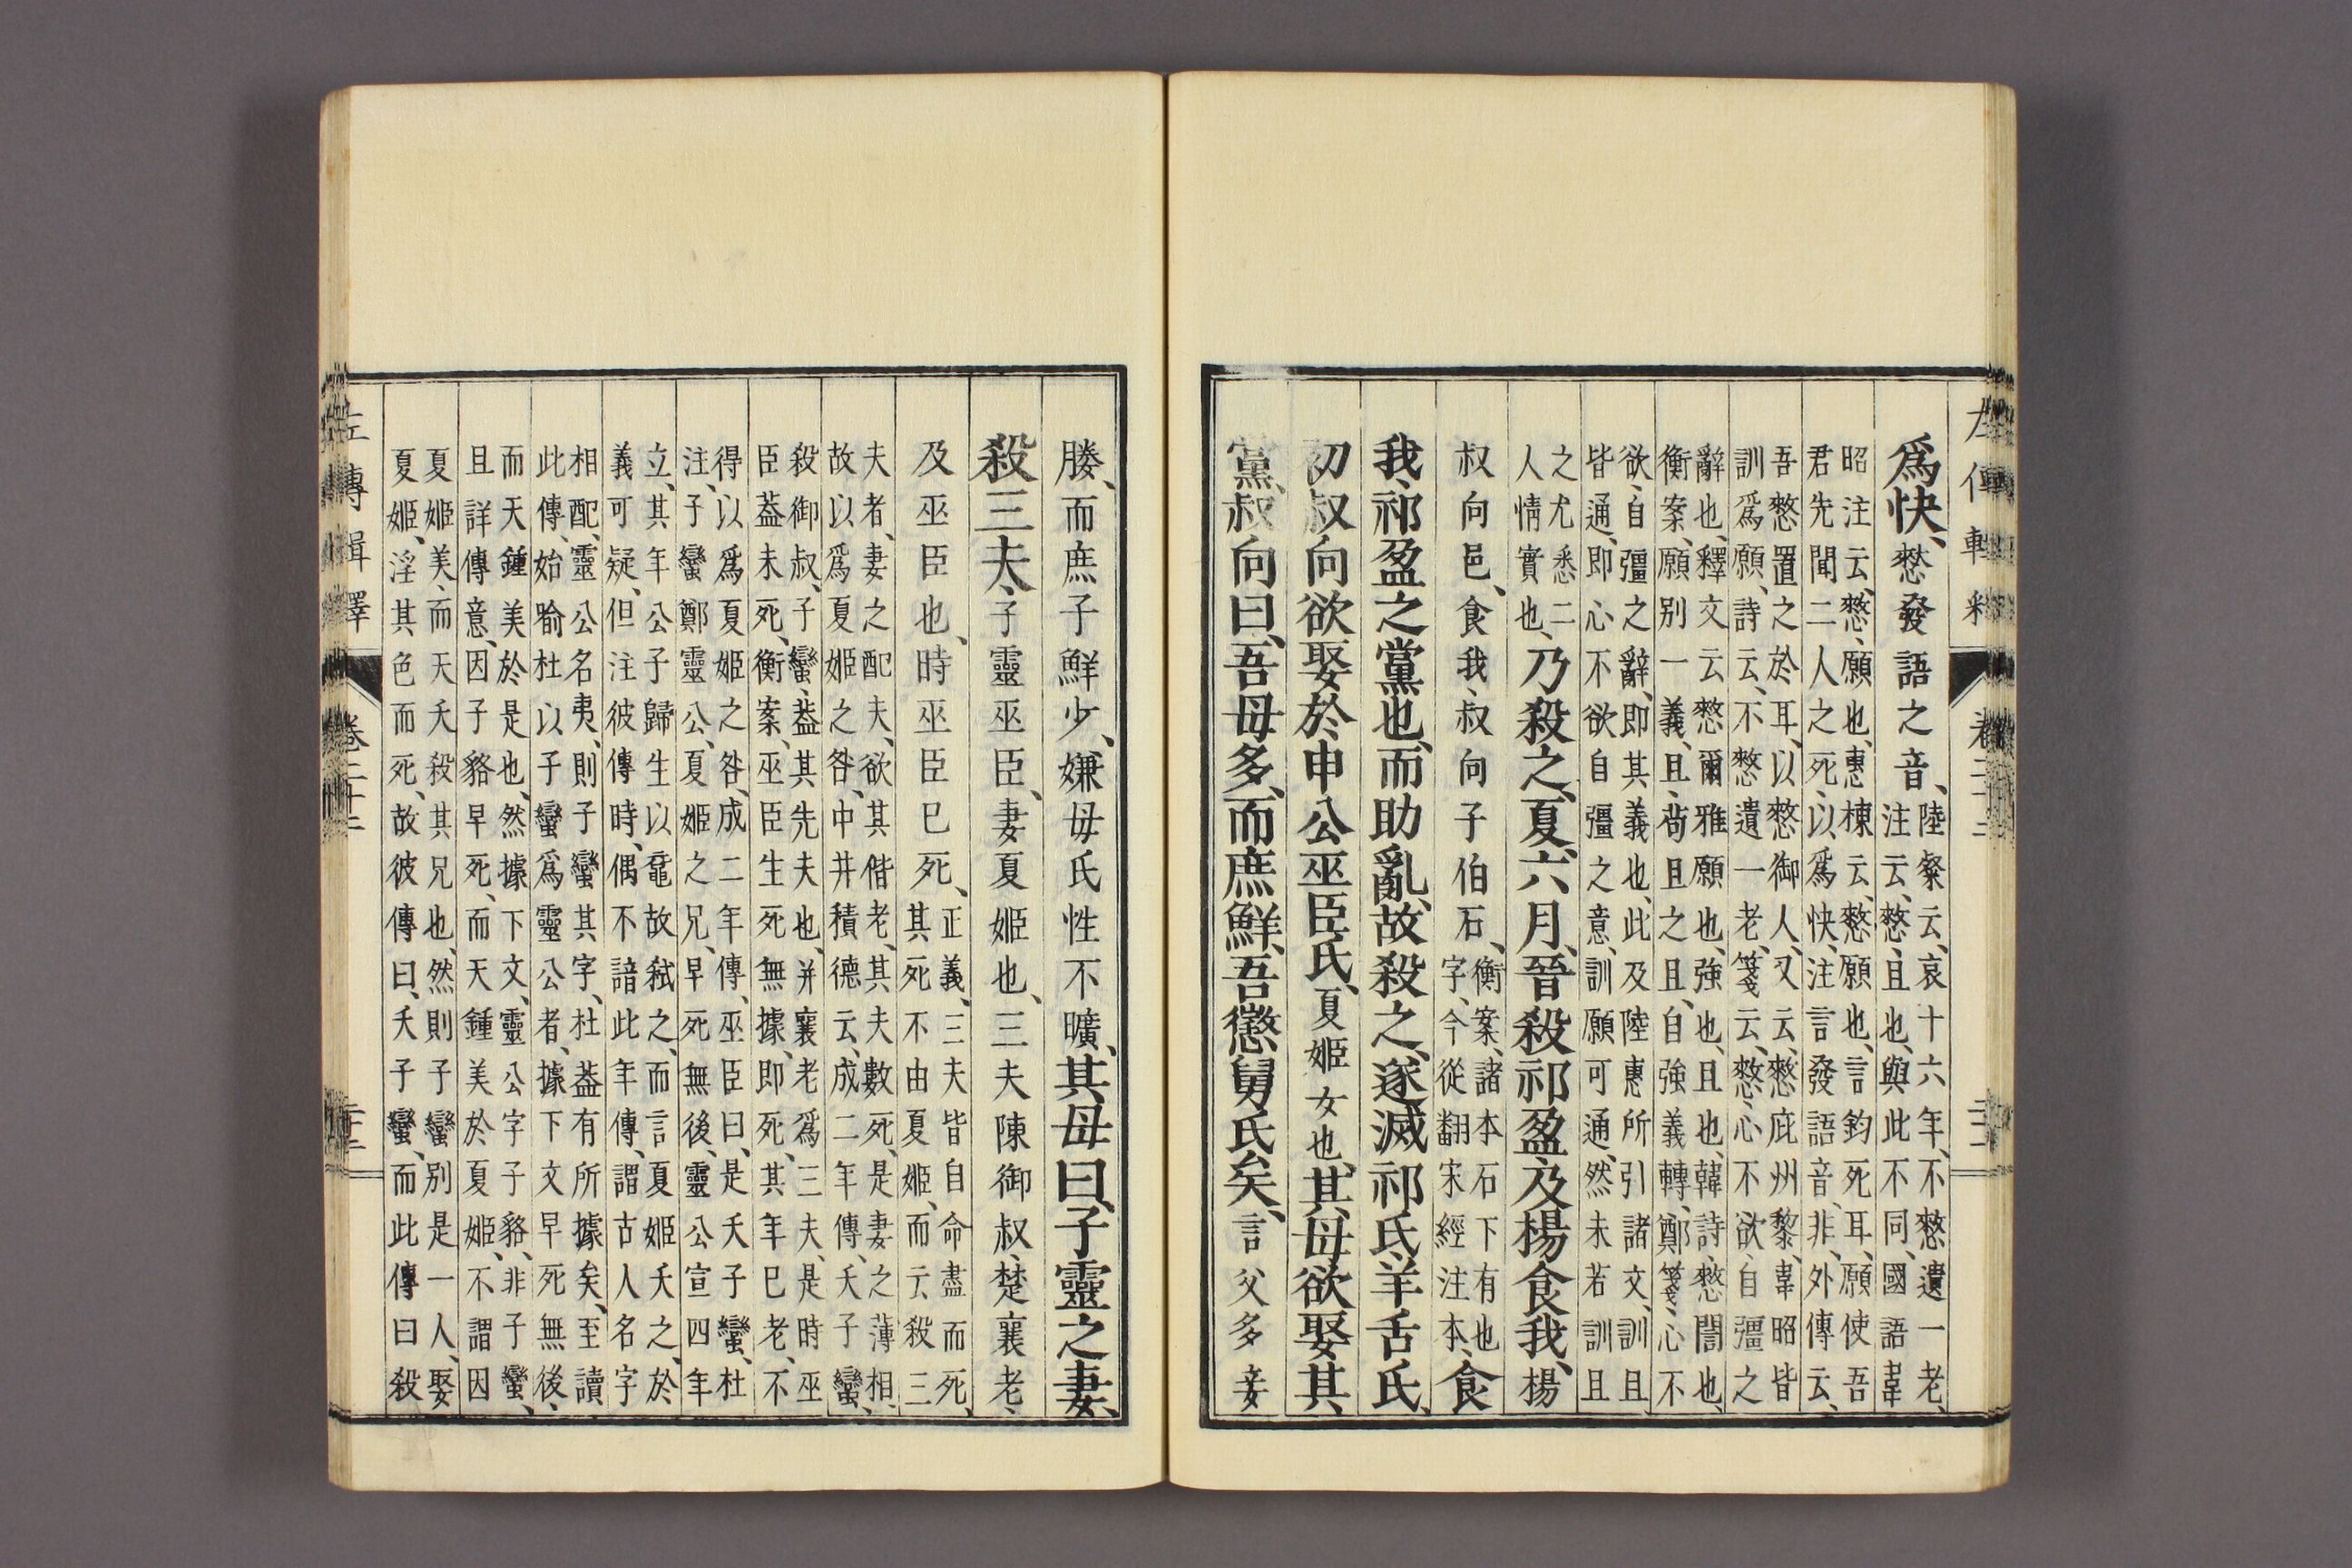 爲快、憖發語之音、陸粲云、哀十六年、不憖遺一老、
注云、憖、且也、與此不同、國語韋
昭注云、憖、願也、惠棟云、憖、願也、言鈞死耳、願使吾
君先聞二人之死、以爲快、注言發語音、非、外傳云、
吾憖置之於耳、以憖御人、又云、憖庇州黎、韋昭皆
訓爲願、詩云、不憖遺一老、箋云、憖、心不欲自彊之
辭也、釋文云憖爾雅願也、強也、且也、韓詩、憖誾也、
衡案、願別一義、且、苟且之且、自強義轉、鄭箋、心不
欲、自彊之辭、即其義也、此及陸惠所引諸文、訓且
皆通、即心不欲自彊之意、訓願可通、然未若訓且
之尤悉二
人情實也、乃殺之、夏六月、晉殺祁盈及楊食我、楊
叔向邑、食我、叔向子伯石、衡案、諸本石下有也
字、今從翻宋經注本、食
我、祁盈之黨也、而助亂、故殺之、遂滅祁氏羊舌氏、
初叔向欲娶於申公巫臣氏、夏姬女也、其母欲娶其
黨、叔向曰、吾母多、而庶鮮、吾懲舅氏矣、言父多妾
媵、而庶子鮮少、嫌母氏性不曠、其母曰、子靈之妻、
殺三夫、子靈巫臣、妻夏姬也、三夫陳御叔、楚襄老、
及巫臣也、時巫臣已死、正義、三夫皆自命盡而死、
其死不由夏姬、而云殺三
夫者、妻之配夫、欲其偕老、其夫數死、是妻之薄相、
故以爲夏姬之咎、中井積德云、成二年傳、夭子蠻、
殺御叔、子蠻、蓋其先夫也、并襄老爲三夫、是時巫
臣蓋未死、衡案、巫臣生死無據、即死、其年已老、不
得以爲夏姬之咎、成二年傳、巫臣曰、是夭子蠻、杜
注、子蠻鄭靈公、夏姬之兄、早死無後、靈公宣四年
立、其年公子歸生以黿故弒之、而言夏姬夭之、於
義可疑、但注彼傳時、偶不諳此年傳、謂古人名字
相配、靈公名夷、則子蠻其字、杜蓋有所據矣、至讀
此傳、始喻杜以子蠻爲靈公者、據下文早死無後、
而天鍾美於是也、然據下文、靈公字子貉、非子蠻、
且詳傳意、因子貉早死、而天鍾美於夏姬、不謂因
夏姬美、而天夭殺其兄也、然則子蠻別是一人、娶
夏姬、淫其色而死、故彼傳曰、夭子蠻、而此傳曰殺
左傳輯釋 卷二十二